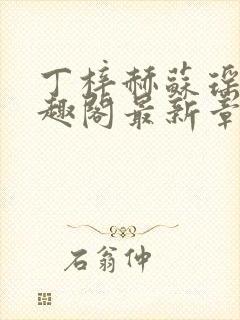 丁梓赫蘇瑶
趣閣最新章
石翁仲